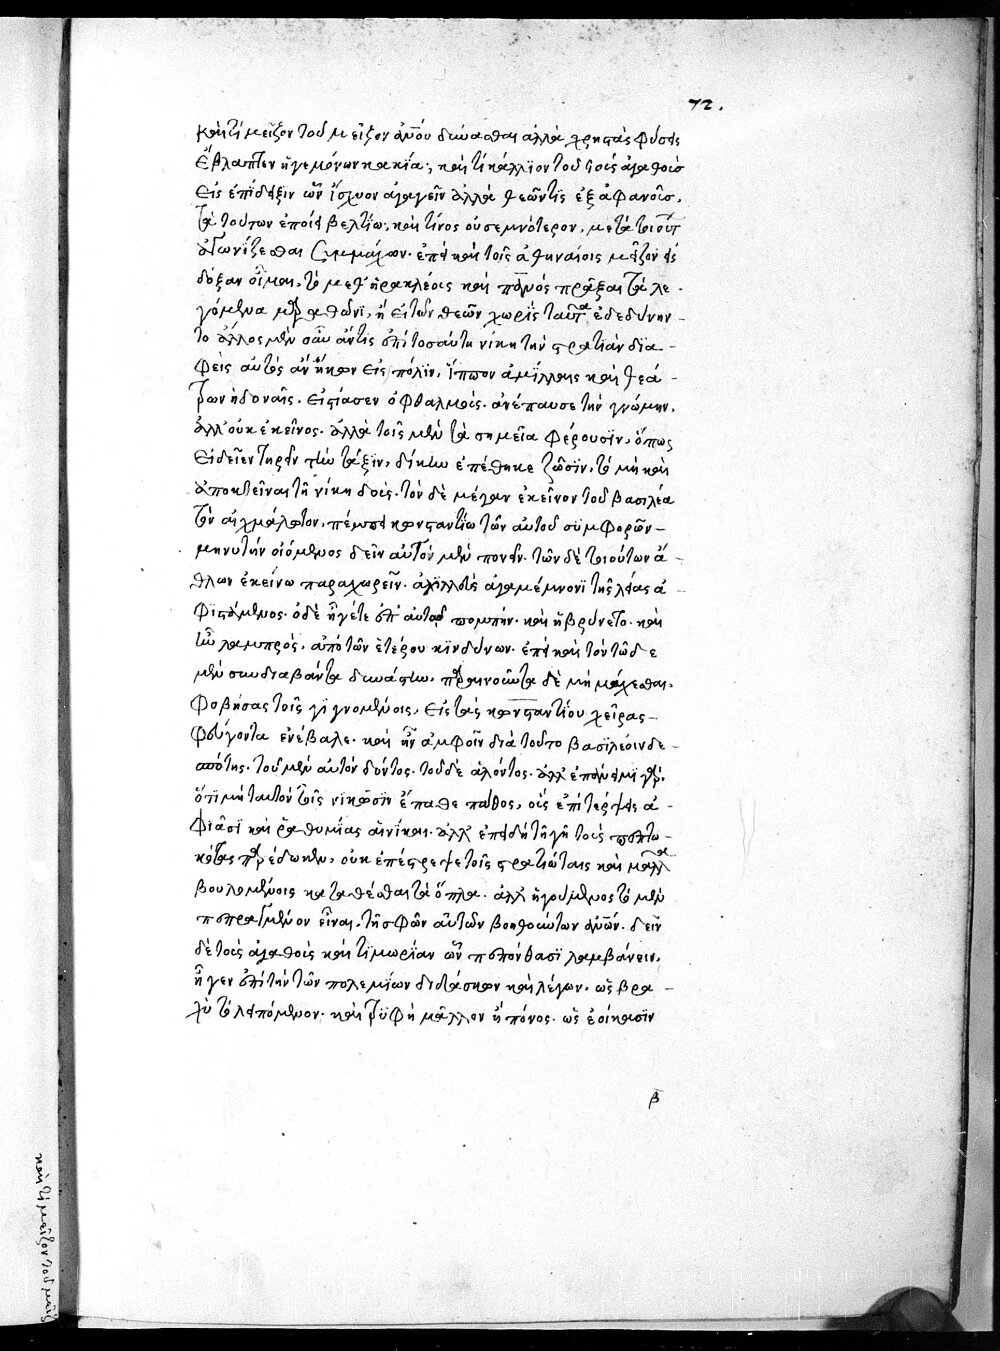 72.
καὶ τί μεῖζον τοῦ μεῖζον μὲν οὐ δύνασθαι ἀλλὰ χρηστὰς φύσεις
ἔβλαπτεν ἡγεμόνων κακία; καὶ τί κάλλιον τοῦ τοὺς ἀγαθοὺς
εἰς ἐπίδειξιν ὧν ἴσχυον ἀγαγεῖν ἀλλὰ θεῶν τις ἐξ ἀφανοῦς.
τὰ τούτων ἐποίει βελτίω; καὶ τίνος οὐ σεμνότερον, μετὰ τοιούτ
ἀγωνίζεσθαι συμμάχων. ἐπεὶ καὶ τοῖς ἀθηναίοις μεῖζον εἰς
δόξαν οἶμαι, τὸ μεθ' ἡρακλέους καὶ πανὸς πρᾶξαι τὰ λε-
γόμενα μαραθῶνι, ἢ εἰ τῶν θεῶν χωρὶς ταῦτα ἐδεδύνην-
το ἄλλος μὲν οὖν ἄν τις ἐπὶ τοσαύτη νίκη τὴν στρατιὰν δια-
φεὶς αὐτὸς ἂν ἧκεν εἰς πόλιν, ἵππων ἁμίλλαις καὶ θεά-
τρων ἡδοναῖς. εἱστίασεν ὀφθαλμοὺς. ἀνέπαυσε τὴν γνώμην.
ἀλλ' οὐκ ἐκεῖνος. ἀλλὰ τοῖς μὲν τὰ σημεῖα φέρουσιν, ὅπως
εἰδεῖεν τηρεῖν τὴν τάξιν, δίκην ἐπέθηκε ζῶσιν, τὸ μὴ καὶ
ἀποκτεῖναι τῆ νίκη δοὺς. τὸν δὲ μέγαν ἐκεῖνον τοῦ βασιλέα
τὸν αἰχμάλωτον, πέμπει κωνσταντίω τῶν αὐτοῦ συμφορῶν-
μηνυτὴν οἰόμενος δεῖν αὐτὸν μὲν πονεῖν. τῶν δὲ τοιούτων ἄ-
θλων ἐκείνω παραχωρεῖν. ἀχιλλεὺς ἀγαμέμνονι τῆς λείας ἀ-
φιστάμενος. ὁ δὲ ἦγέ τε ἐπ' αὐτοῦ πομπὴν. καὶ ἡβρύνετο. καὶ
ἦν λαμπρὸς, ἀπὸ τῶν ἑτέρου κινδύνων. ἐπεὶ καὶ τὸν τῶδε
μὲν συνδιαβάντα δυνάστην. παραινοῦντα δὲ μὴ μάχεσθαι.
φοβήσας τοῖς γιγνομένοις, εἰς τὰς κωνσταντίου χεῖρας-
φεύγοντα ἐνέβαλε. καὶ ἦν ἀμφοῖν διὰ τοῦτο βασιλέοιν δε-
σπότης. τοῦ μὲν αὐτὸν δόντος. τοῦ δὲ ἁλόντος. ἀλλ' ἐπάνειμι γὰρ.
ὅτι μὴ ταυτὸν τοῖς νικῶσιν ἔπαθε πάθος, οὓς ἐπὶ τέρψεις ἀ-
φιᾶσι καὶ ῥαθυμίας αἱ νίκαι. ἀλλ' ἐπειδὴ τῆ γῆ τοὺς πεπτω-
κότας παρέδωκεν, οὐκ ἐπέτρεψε τοῖς στρατιώταις καὶ μάλα
βουλομένοις καταθέσθαι τὰ ὅπλα. ἀλλ' ἡγούμενος τὸ μὲν
πεπραγμένον εἶναι. τῆ σφῶν αὐτῶν βοηθούντων ἀμῦν. δεῖν
δὲ τοὺς ἀγαθοὺς καὶ τιμωρίαν ὧν πεπόνθασι λαμβάνειν.
ἦγεν ἐπὶ τὴν τῶν πολεμίων διδάσκων καὶ λέγων. ὡς βρα-
χὺ τὸ λειπόμενον. καὶ τρυφὴ μᾶλλον ἢ πόνος. ὡς ἐοίκασιν
β
καὶ τί μεῖζον τοῦ μεῖζ